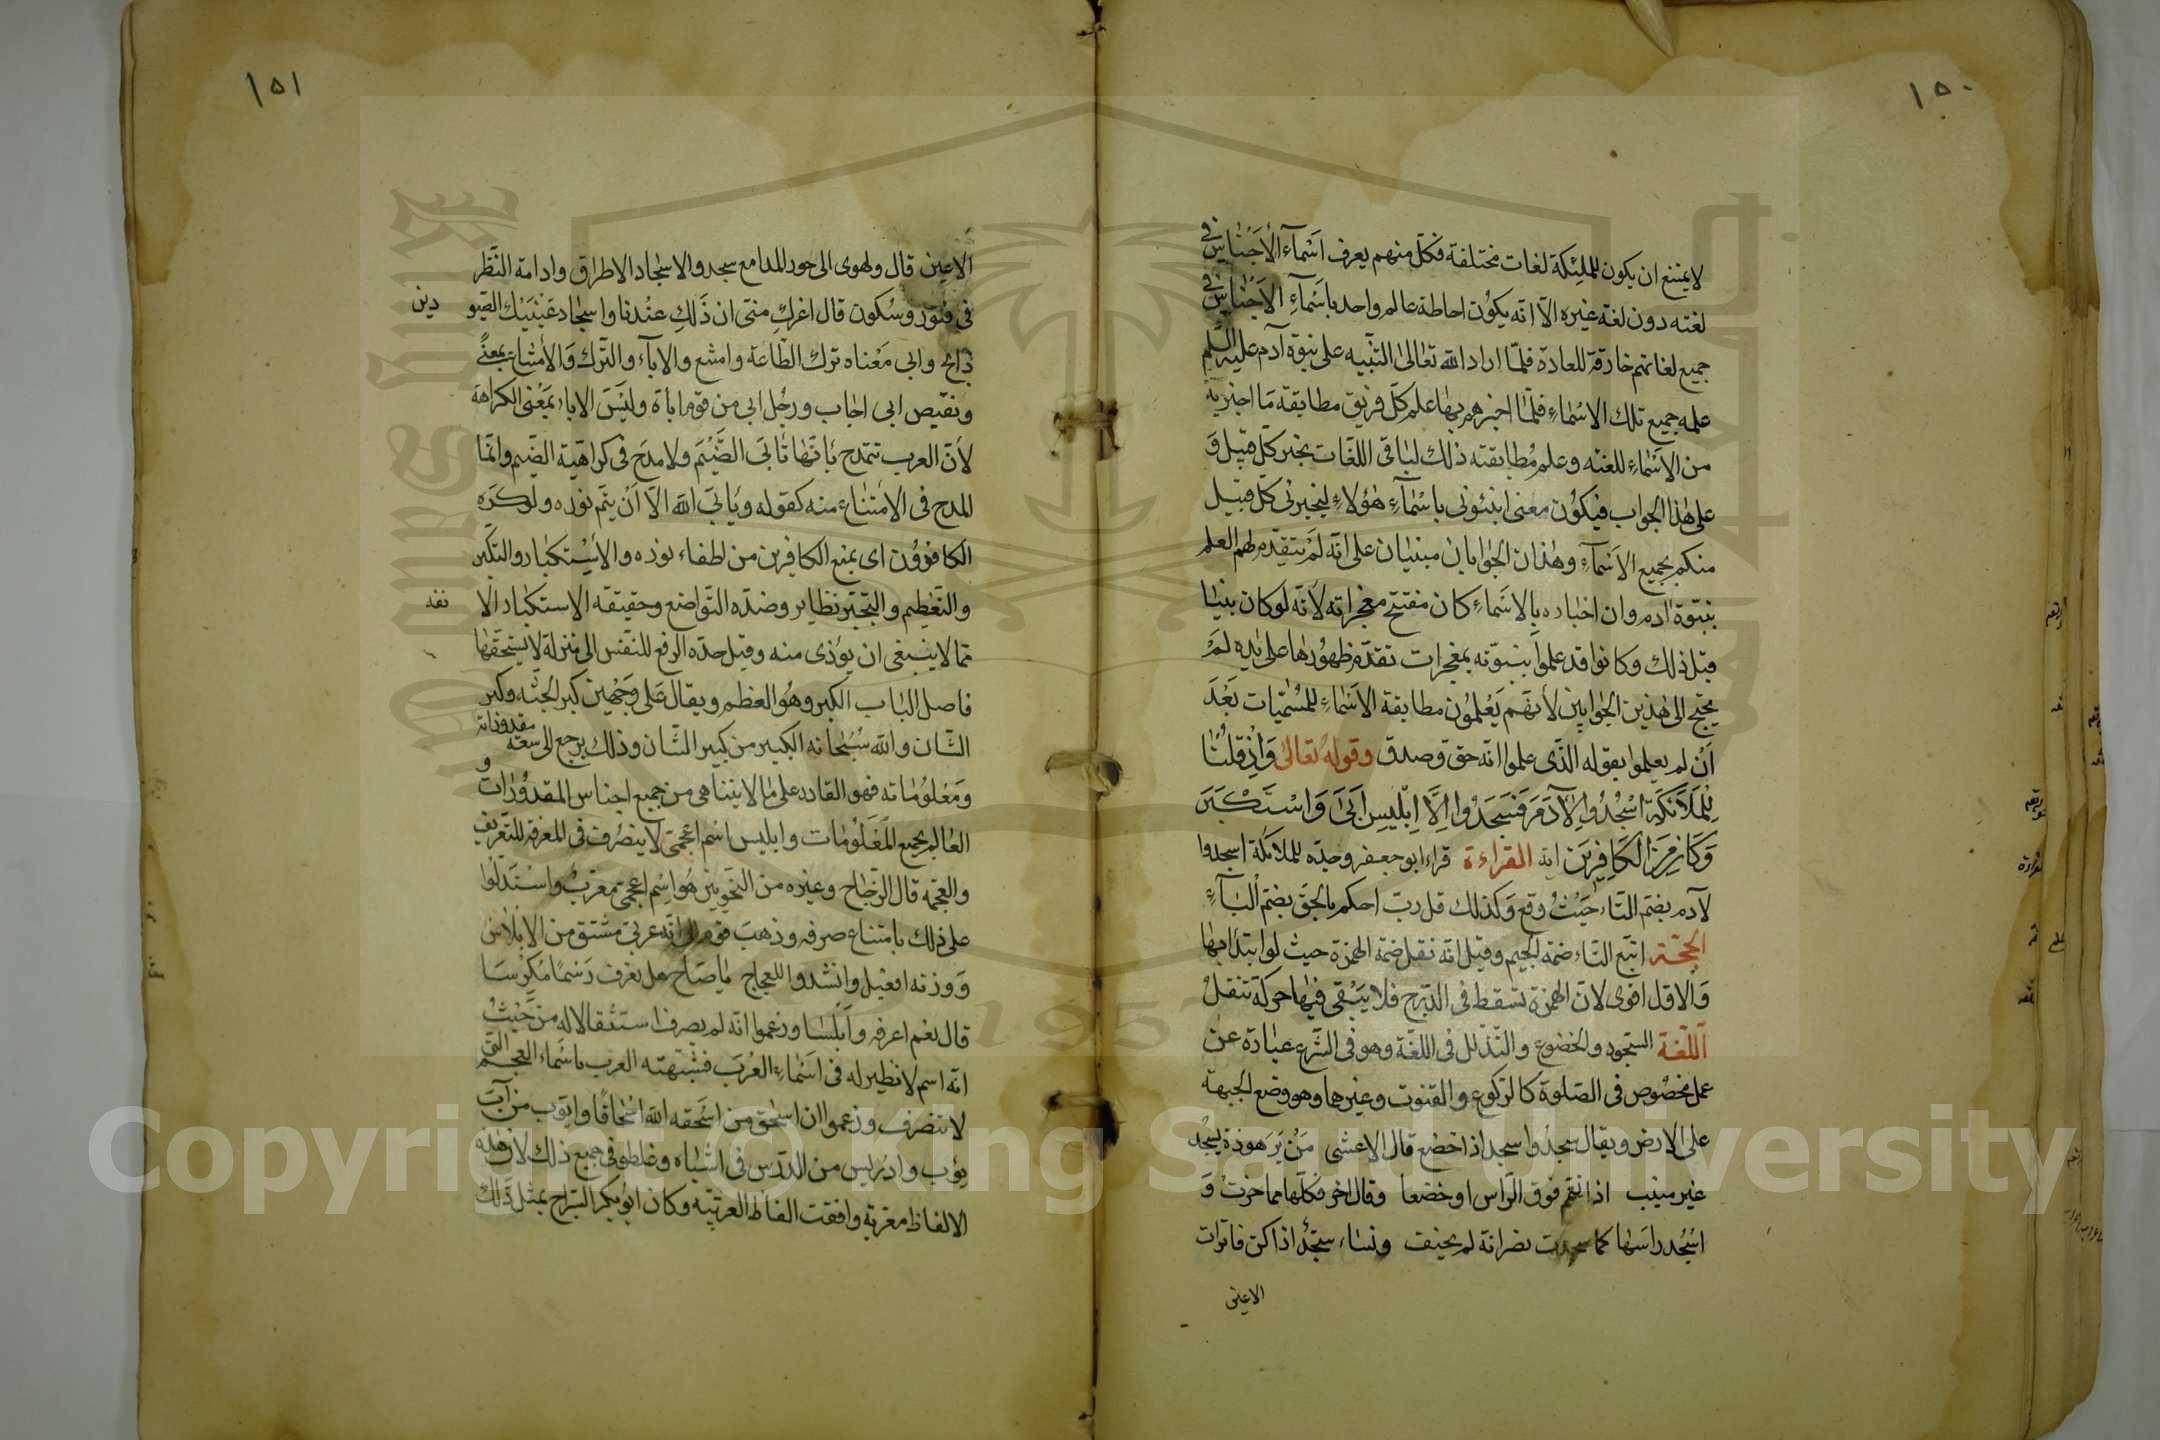 ١٥٠
لا يمتنع ان يكون للملئكة لغات مختلفة فكل منهم يعرف اسْمآء الأجْناس فى
لغته دون لغة غيره الّا انّه يكوُن احاطة عالم واحد باسْمآءِ الاَجْناس فى
جميع لغاتهم خارقة للعادة فلمّا اراد الله تعٰالىٰ التنبيه على نبوّة آدم عليه السّلم
علمه جميع تلك الاسْماءِ فلمّا اخبرهم بها علم كلّ فريق مطابقة مَا اخبر به
من الاسْماءِ للغته وعلم مُطابقته ذلك لبٰاقى اللغات بخبر كلّ قبيل وَ
على هٰذا الجواب فيكوُن معنى انبئونى باسْمآءِ هٰؤلاءِ ليخبرنى كلّ قبيل
منكم بجميع الاَسْمآءِ وهٰذان الجوابان مبنيان على انّه لمْ يتقدّم لهم العلم
بنبوّة اٰدم وان اخباره بالاسَماءِ كان مفتتح معجزاته لأنّه لو كان نبيّا
قبل ذلك وكانوا قد علموا بنبوّته بمعجزات تقدّم ظهُورهٰا على يٰديه لمْ
يحتج الى هٰذين الجوابين لأنهّم يَعْلموُن مطابقة الاَسْمٰاءِ للمُسْمّيات بَعْدَ
اَنْ لم يعلموا بقوله الذّى علموا انّه حق وصدق وقوله تعالىٰ وَاِذْ قلنٰا
لِلْملَآئكَةِ اسْجُدُوا لِآدَمَ فَسَجَدُوا اِلَّا اِبْلِيس اَبىٰ وَاسْتَكْبَرَ
وَكَانَ مِنَ الكَافِرِيَن اية القراءة قراء ابو جعفر وحدّه للملائكة اسجدوا
لآدم بضم التّاء حَيْثُ وقع وَكذلك قل ربّ احكم بالحق بضم الْبٰآءِ
الحجّة اتبع التّاء ضمة الجيم وقيل انّه نقل ضمة الهمزة حيث لو ابتدابها
وَالاوّل اقوى لان الهمزة تسقط فى الدّرج فلا يَبْقى فيهٰا حركة تنقلْ
اللّغة السّجود والخضوع والتّذلل فى اللغّة وهو فى الشّرع عبٰارة عن
عمل مخصْوص فى الصّلوة كالركوع والقنوت وغيرها وهو وضع الجبهة
على الارض ويقال سجدُوا سجد اذا خضع قال الاعشى مَنْ يَرَ هوذة يسجْد
غير متيّب اذا تعمّم فوق الرّاس او خضعا وقال اخر فكلّها مما خرت وَ
اسْجُد راسَها كما سجدت نصرانة لم تحنف ونساء سجّد اذا كن فاترات
الاعين
١٥١
الاعين قال ولهوى الى حور المدامع سجد والاسجٰاد الاطراق وادامة النّظر
فى فتور وسُكون قال اغركِ منى ان ذَلكِ عنْدنا واسجٰاد عَيْنيَيْك الصّيو
دين
ذابح وابى مَعْناه ترك الطّاعة وامتنع والاباء والترّك وَالأمتناع بمعنىً
ونقيص ابى اجاب ورجُل ابى من قوم اباة وليْسَ الاباء بمَعْنى الكراهة
لأنّ العرب تتمدح بأنّها تأبى الضّيْمَ ولا مدَح فى كراهيّة الضّيم وانّما
المدح فى الامتناع منه كقوله وَيَأبَى الله الّا اَنْ يتَم نوره ولو كرَه
الكافروُن اى يمنع الكافرين من اطفاء نوره والاسْتكبٰار والتكبّر
والتعٰظيم والتجبّر نظاير وضدّه التّواضع وحقيقة الاستكبٰار الا
نفه
ممّا لا ينبغى ان يوُذى منه وقيل حدّه الرفع للنّفس الى منزلة لا يستحقها
فاصل البٰاب الكبر وهُو العظم ويقال عَلى وَجْهين كبر الجثّه وكبر
الشّان والله سُبْحانه الكبيير من كبير الشّان وذلك يرجع الى سعَة مقدوراته
ومَعْلوُماته فهو القادر على مٰا لا يتناهى من جميع اجناس المقدوُرٰات و
العٰالم بجميع المَعْلوُمٰات وابليس اسْم اعجمّى لا ينصرف فى المعرفة للتّعريف
والعَجمة قال الزجّاج وغيره من النحّويين هُو اسْم اعجمّى معَرّب واسْتدَلّوُا
على ذلك بامتناع صرفه وذهبَ قوم الى انّه عربّى مشتق من الابلاس
وَوزنه افعيل وانشدوا للعجاج يٰا صٰاح هل تعرف رَسْمًا مُكرْسَا
قال نعَم اعرفه وَابْلسٰا وزعموا انّه لم يصرف استثقالا له من حَيْثُ
انّه اسم لا نظير له فى اسَمٰاءِ العُربَ فشبّهته العرب باسْماء العجم التى
لا تنصرف وزعموا ان اسحٰق من اسْحَقه الله اسْحٰاقًا وايّوب من آبَ
يؤب وادْريس من الدّرْس فى اشبٰاه وغلطو فى جميع ذلك لان هٰذه
الالفاظ معَربّة وافقت الفٰاظ العربيّة وكان ابُو بكر السّراج يمثل ذلك